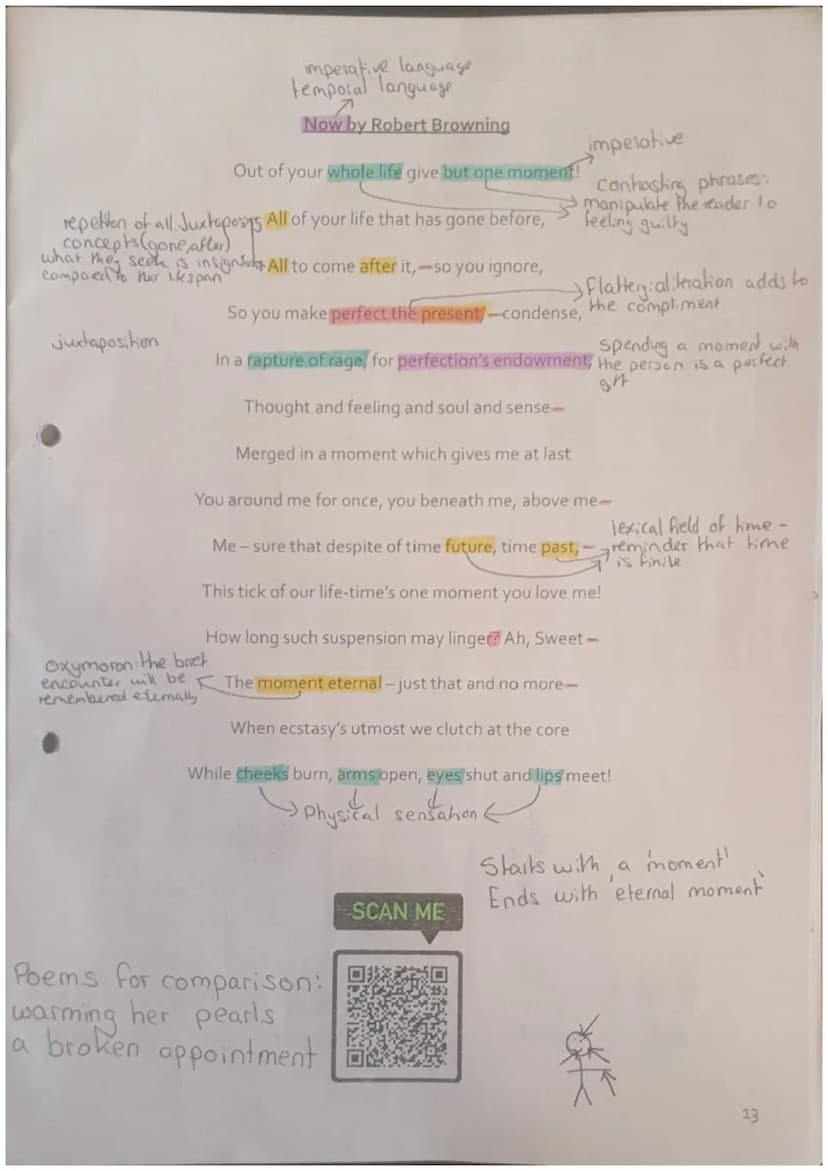 imperative language
temporal language
Now by Robert Browning
imperative
Out of your whole life give but one moment!
Contrasting phrases:
manipulate the reader to
feeling guilty
repetion of all. Juxtaposing
concepts (gone, after)
what they seek is
compared to their lifespan
All of your life that has gone before,
All to come after it, – so you ignore,
Flattery: aliteration adds to
the compliment
So you make perfect the present, – condense,
juxtaposition
In a rapture of rage, for perfection's endowment,
Spending a moment with
the person is a perfect
gift
Thought and feeling and soul and sense –
Merged in a moment which gives me at last
You around me for once, you beneath me, above me –
Me – sure that despite of time future, time past, –
lexical field of time –
reminder that time
is finite
This tick of our life-time's one moment you love me!
How long such suspension may linger? Ah, Sweet –
Oxymoron: the brief
encounter will be
remembered eternally
The moment eternal – just that and no more –
When ecstasy's utmost we clutch at the core
While cheeks burn, arms open, eyes shut and lips meet!
Physical sensation
Starts with 'a moment'
Ends with 'eternal moment'
SCAN ME
Poems for comparison:
warming her pearls
a broken appointment
23